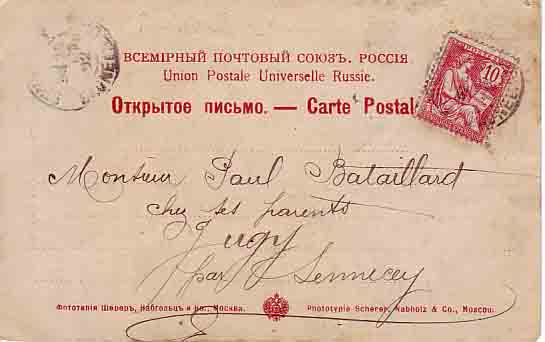 ВСЕМІРНЫЙ ПОЧТОВЫЙ СОЮЗЪ. РОССІЯ
Union Postale Universelle Russie.
Открытое письмо. — Carte Postal
10
Monsieur Paul Bataillard
chez ses parents
Jugy
par Sennecey
Фототипія Шереръ, Набгольцъ и Ко., Москва.
Phototypie Scherer, Nabholz & Co., Moscou.